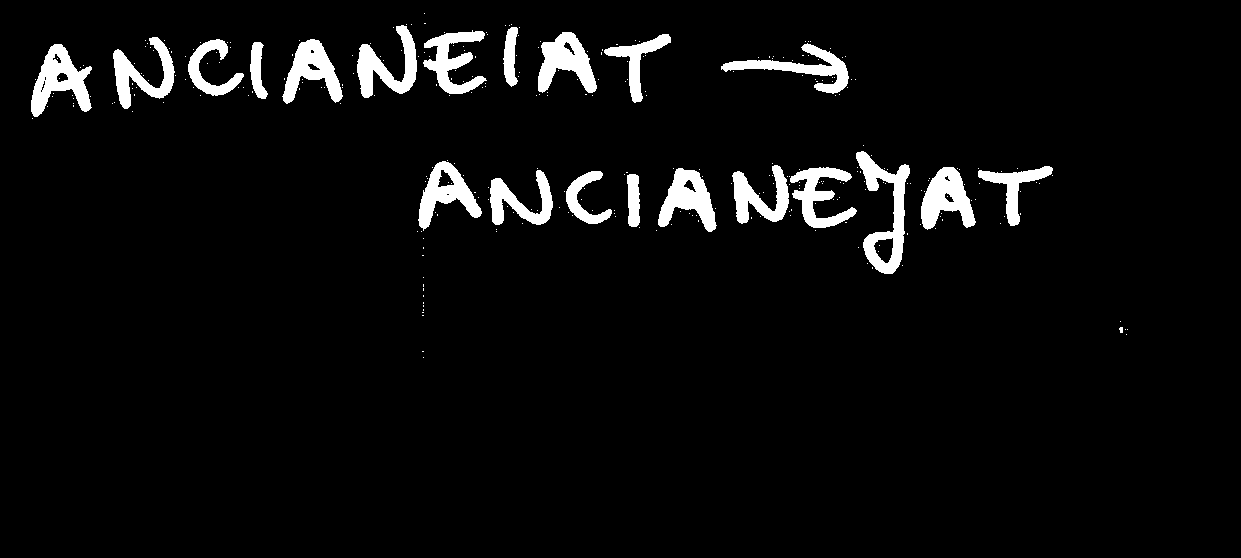 ANCIANEIAT →
ANCIANEJAT